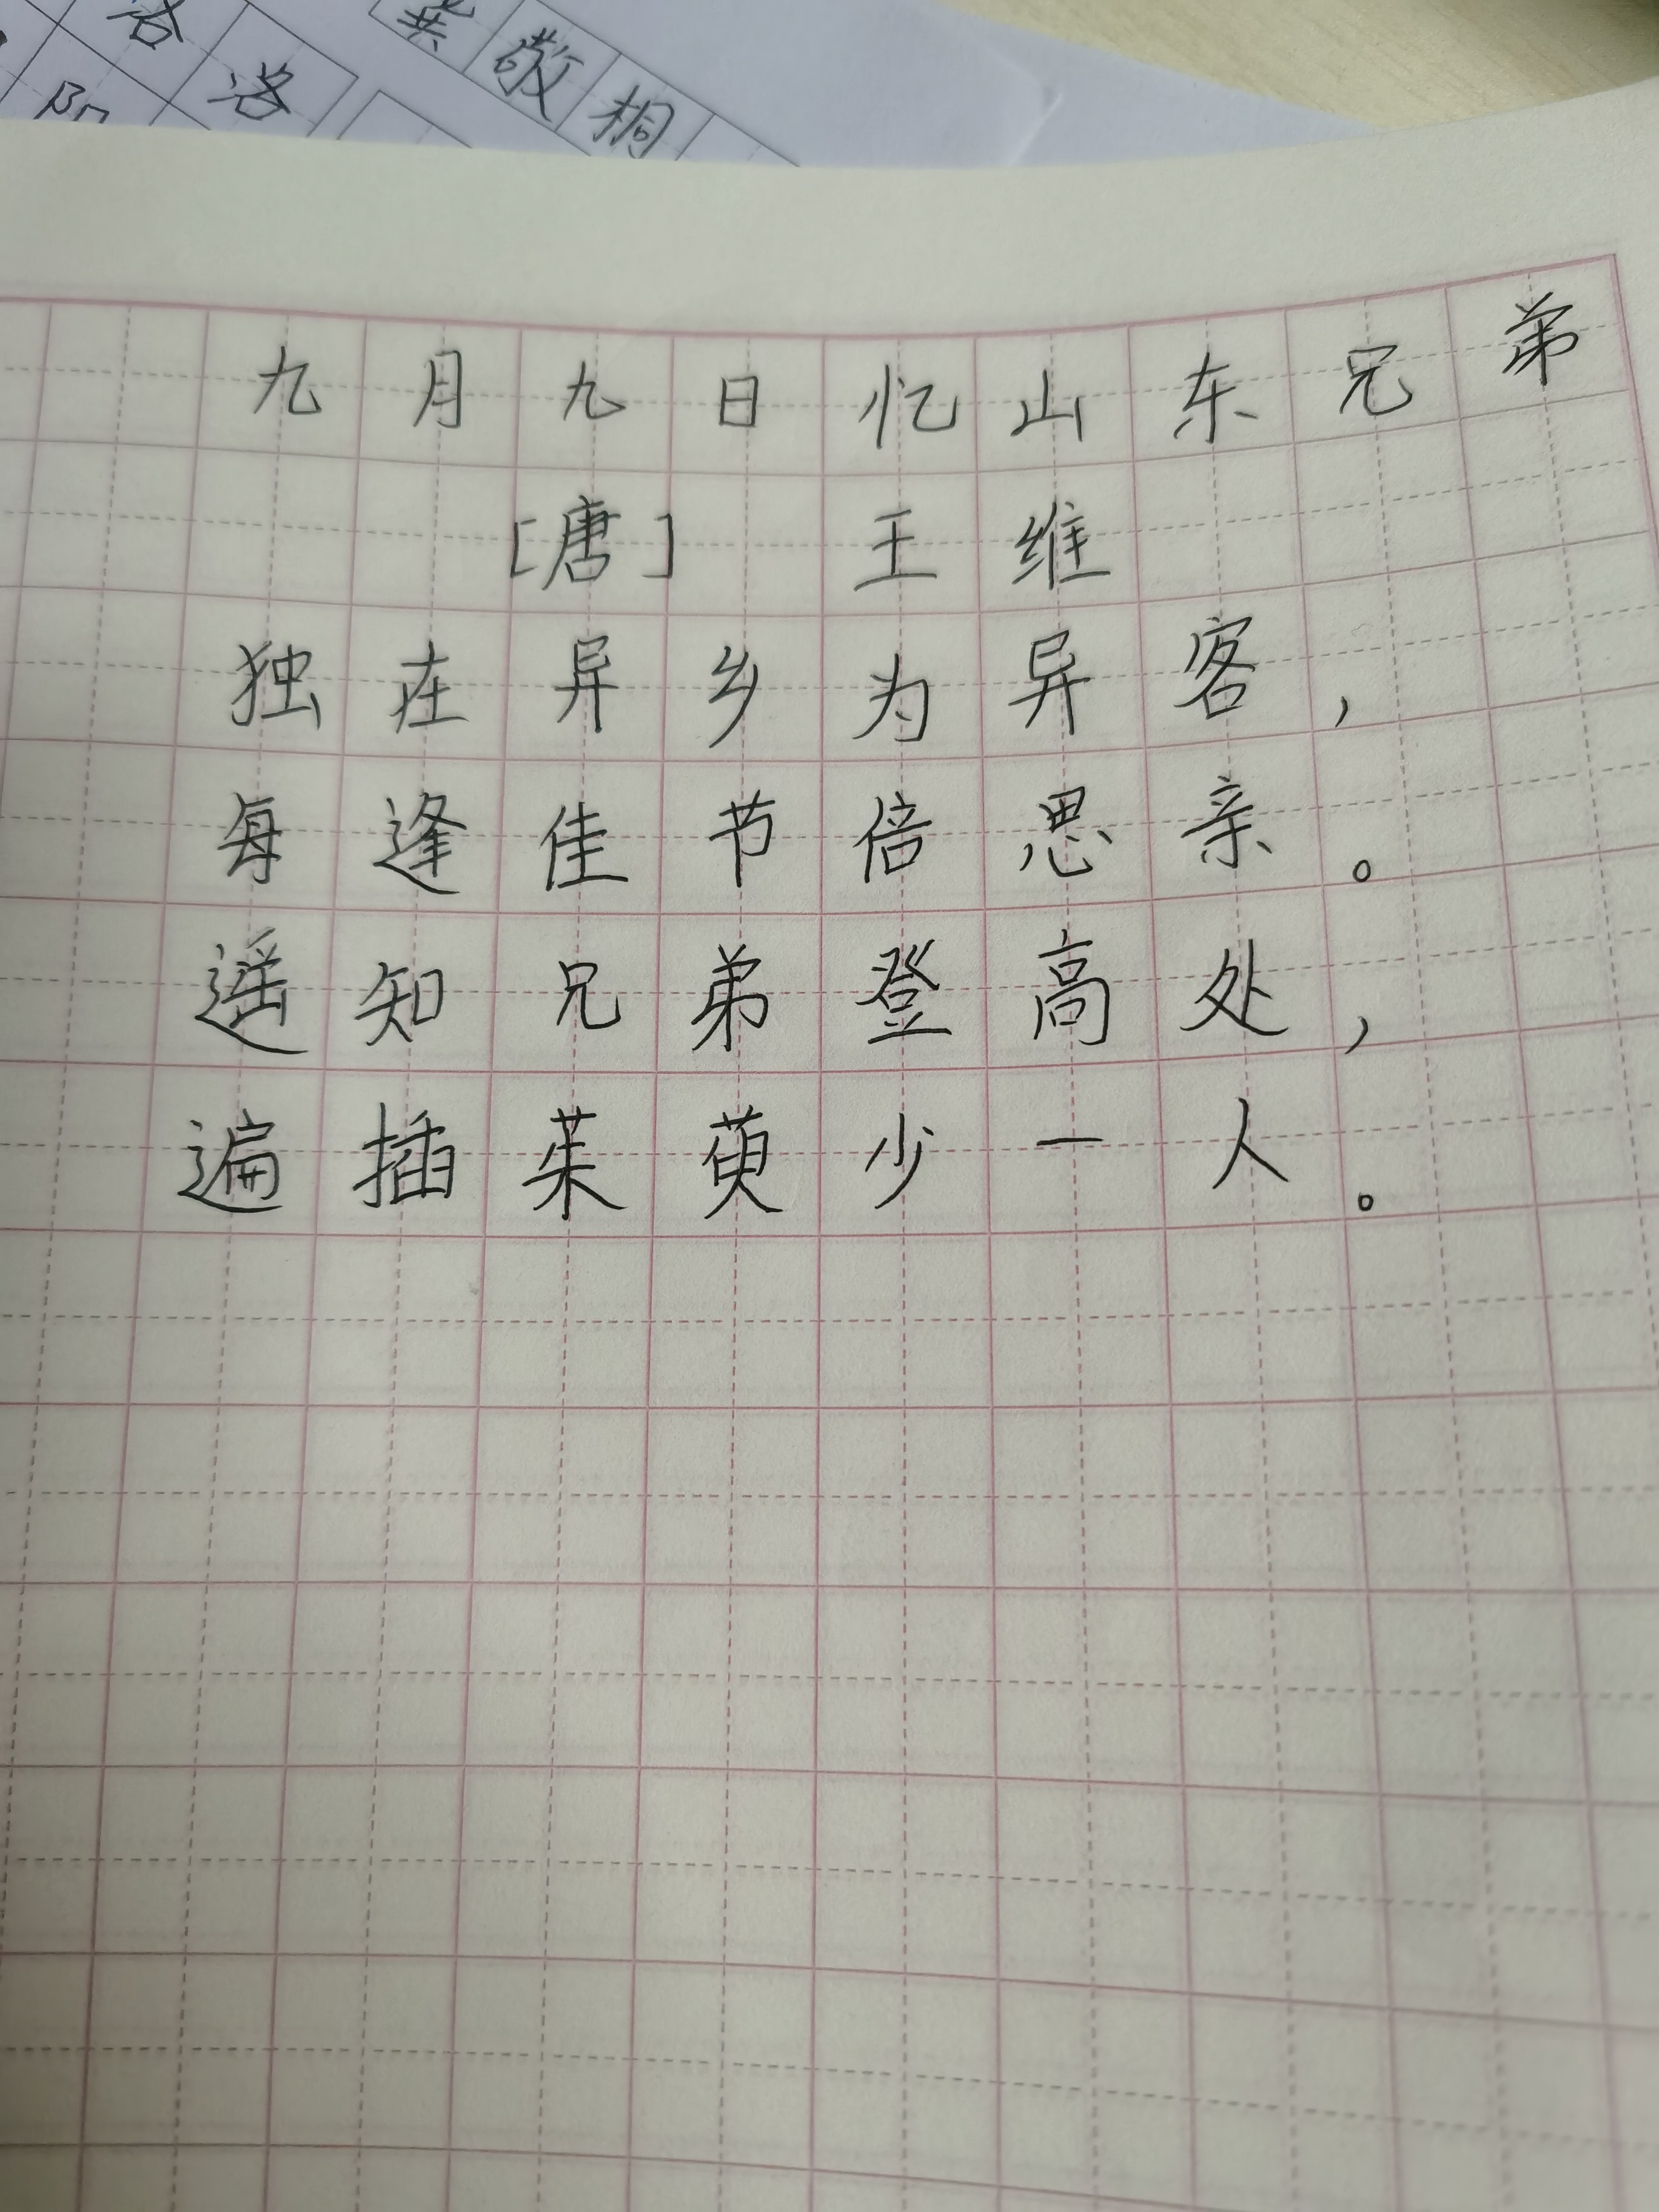 洛
洛
阳
龚敬桐
九月九日忆山东兄弟
[唐] 王维
独在异乡为异客，
每逢佳节倍思亲。
遥知兄弟登高处，
遍插茱萸少一人。